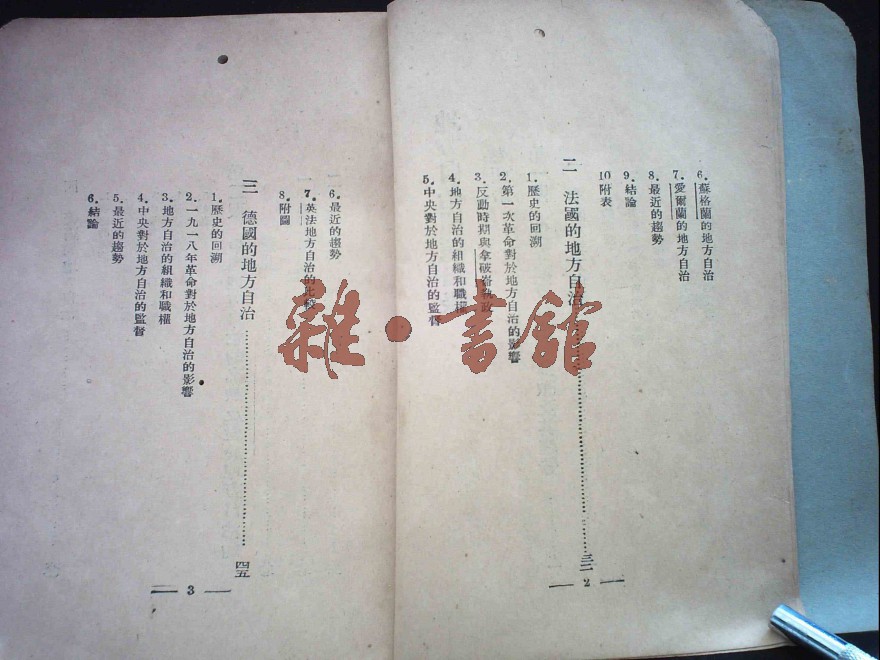 6.蘇格蘭的地方自治
7.愛爾蘭的地方自治
8.最近的趨勢
9.結論
10附表
二 法國的地方自治……三二
1.歷史的回溯
2.第一次革命對於地方自治的影響
3.反動時期與拿破崙執政
4.地方自治的組織和職權
5.中央對於地方自治的監督
2
6.最近的趨勢
7.英法地方自治的比較
8.附圖
三 德國的地方自治……四五
1.歷史的回溯
2.一九一八年革命對於地方自治的影響
3.地方自治的組織和職權
4.中央對於地方自治的監督
5.最近的趨勢
6.結論
3
雜·書館